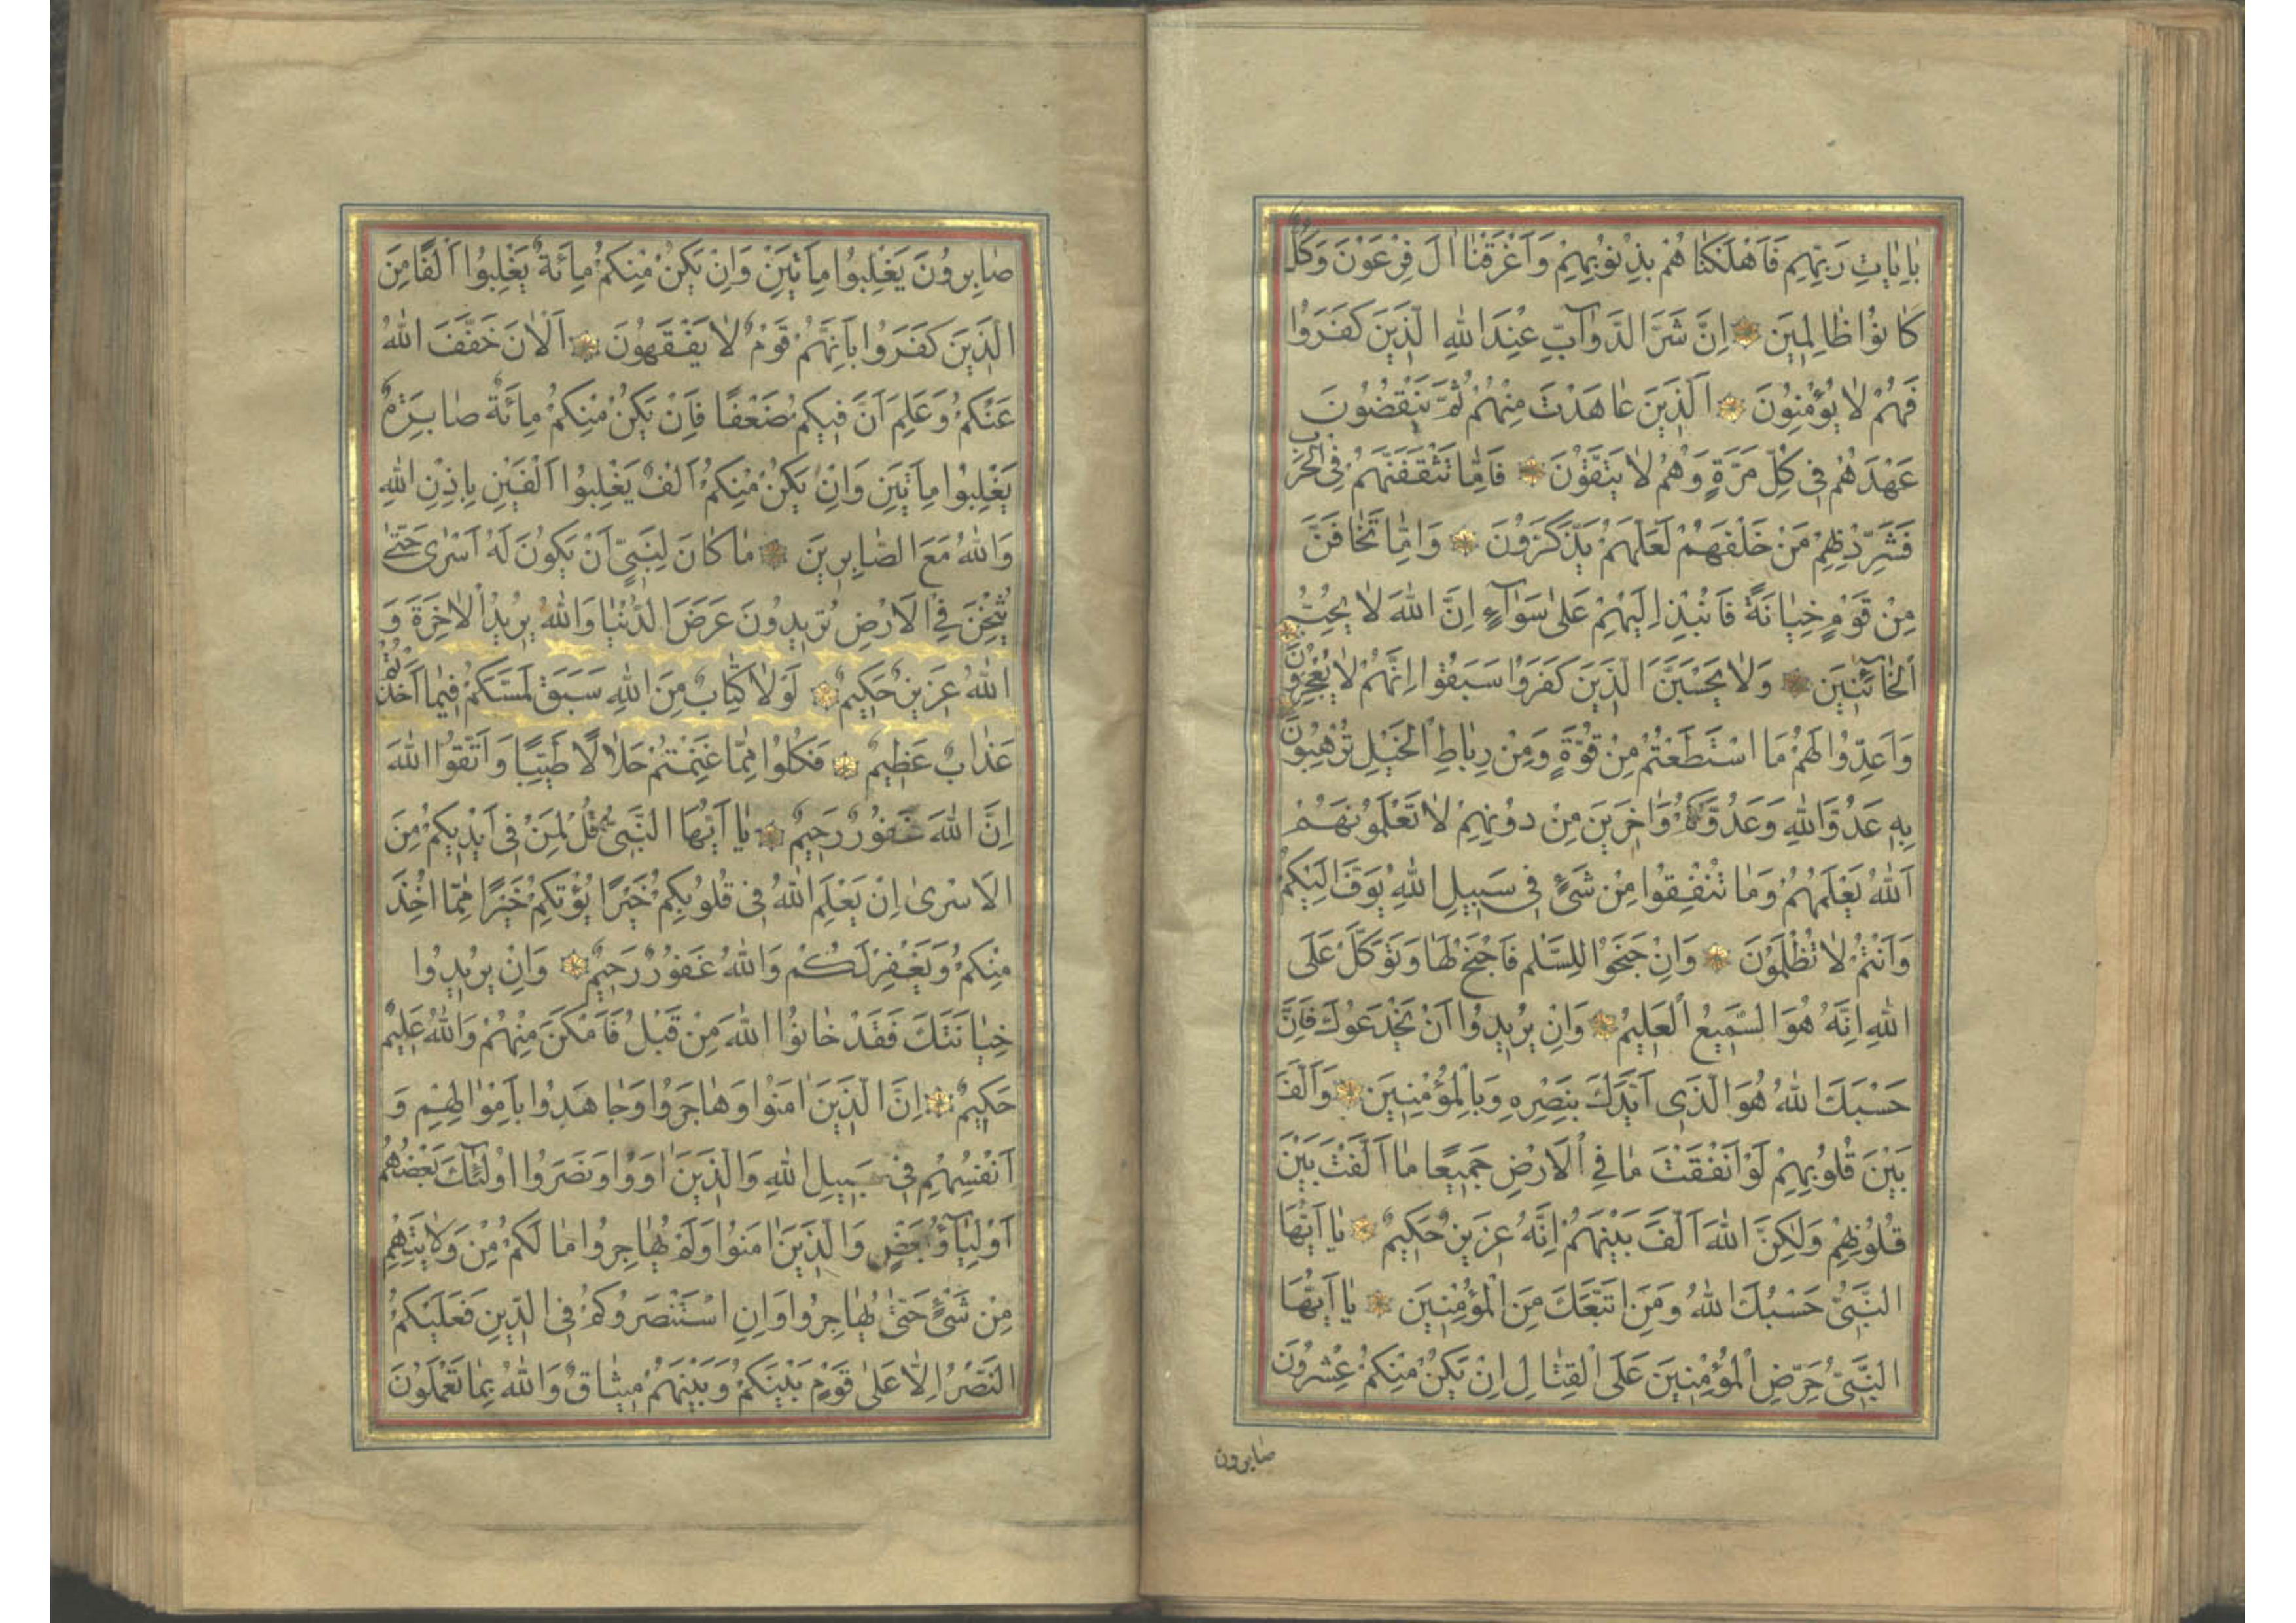 بِاٰيَاتِ رَبِّهِمْ فَاَهْلَكْنَاهُمْ بِذُنُوبِهِمْ وَاَغْرَقْنَا اٰلَ فِرْعَوْنَ وَكُلٌّ
كَانُوا ظَالِمِينَ اِنَّ شَرَّ الدَّوَآبِّ عِنْدَ اللهِ الَّذِينَ كَفَرُوا
فَهُمْ لَا يُؤْمِنُونَ اَلَّذِينَ عَاهَدْتَ مِنْهُمْ ثُمَّ يَنْقُضُونَ
عَهْدَهُمْ فِى كُلِّ مَرَّةٍ وَهُمْ لَا يَتَّقُونَ فَاِمَّا تَثْقَفَنَّهُمْ فِى الْحَرْبِ
فَشَرِّدْ بِهِمْ مَنْ خَلْفَهُمْ لَعَلَّهُمْ يَذَّكَّرُونَ وَاِمَّا تَخَافَنَّ
مِنْ قَوْمٍ خِيَانَةً فَانْبِذْ اِلَيْهِمْ عَلٰى سَوَآءٍ اِنَّ اللهَ لَا يُحِبُّ
الْخَآئِنِينَ وَلَا يَحْسَبَنَّ الَّذِينَ كَفَرُوا سَبَقُوا اِنَّهُمْ لَا يُعْجِزُونَ
وَاَعِدُّوا لَهُمْ مَا اسْتَطَعْتُمْ مِنْ قُوَّةٍ وَمِنْ رِبَاطِ الْخَيْلِ تُرْهِبُونَ
بِهِ عَدُوَّ اللهِ وَعَدُوَّكُمْ وَاٰخَرِينَ مِنْ دُونِهِمْ لَا تَعْلَمُونَهُمْ
اَللهُ يَعْلَمُهُمْ وَمَا تُنْفِقُوا مِنْ شَىْءٍ فِى سَبِيلِ اللهِ يُوَفَّ اِلَيْكُمْ
وَاَنْتُمْ لَا تُظْلَمُونَ وَاِنْ جَنَحُوا لِلسَّلْمِ فَاجْنَحْ لَهَا وَتَوَكَّلْ عَلَى
اللهِ اِنَّهُ هُوَ السَّمِيعُ الْعَلِيمُ وَاِنْ يُرِيدُوا اَنْ يَخْدَعُوكَ فَاِنَّ
حَسْبَكَ اللهُ هُوَ الَّذِى اَيَّدَكَ بِنَصْرِهِ وَبِالْمُؤْمِنِينَ وَاَلَّفَ
بَيْنَ قُلُوبِهِمْ لَوْ اَنْفَقْتَ مَا فِى الْاَرْضِ جَمِيعًا مَا اَلَّفْتَ بَيْنَ
قُلُوبِهِمْ وَلٰكِنَّ اللهَ اَلَّفَ بَيْنَهُمْ اِنَّهُ عَزِيزٌ حَكِيمٌ يَا اَيُّهَا
النَّبِىُّ حَسْبُكَ اللهُ وَمَنِ اتَّبَعَكَ مِنَ الْمُؤْمِنِينَ يَا اَيُّهَا
النَّبِىُّ حَرِّضِ الْمُؤْمِنِينَ عَلَى الْقِتَالِ اِنْ يَكُنْ مِنْكُمْ عِشْرُونَ
صابرون
صَابِرُونَ يَغْلِبُوا مِاَتَيْنِ وَاِنْ يَكُنْ مِنْكُمْ مِائَةٌ يَغْلِبُوا اَلْفًا مِنَ
الَّذِينَ كَفَرُوا بِاَنَّهُمْ قَوْمٌ لَا يَفْقَهُونَ اَلْاٰنَ خَفَّفَ اللهُ
عَنْكُمْ وَعَلِمَ اَنَّ فِيكُمْ ضَعْفًا فَاِنْ يَكُنْ مِنْكُمْ مِائَةٌ صَابِرَةٌ
يَغْلِبُوا مِاَتَيْنِ وَاِنْ يَكُنْ مِنْكُمْ اَلْفٌ يَغْلِبُوا اَلْفَيْنِ بِاِذْنِ اللهِ
وَاللهُ مَعَ الصَّابِرِينَ مَا كَانَ لِنَبِىٍّ اَنْ يَكُونَ لَهُ اَسْرٰى حَتّٰى
يُثْخِنَ فِى الْاَرْضِ تُرِيدُونَ عَرَضَ الدُّنْيَا وَاللهُ يُرِيدُ الْاٰخِرَةَ وَ
اللهُ عَزِيزٌ حَكِيمٌ لَوْلَا كِتَابٌ مِنَ اللهِ سَبَقَ لَمَسَّكُمْ فِيمَا اَخَذْتُمْ
عَذَابٌ عَظِيمٌ فَكُلُوا مِمَّا غَنِمْتُمْ حَلَالًا طَيِّبًا وَاتَّقُوا اللهَ
اِنَّ اللهَ غَفُورٌ رَحِيمٌ يَا اَيُّهَا النَّبِىُّ قُلْ لِمَنْ فِى اَيْدِيكُمْ مِنَ
الْاَسْرٰى اِنْ يَعْلَمِ اللهُ فِى قُلُوبِكُمْ خَيْرًا يُؤْتِكُمْ خَيْرًا مِمَّا اُخِذَ
مِنْكُمْ وَيَغْفِرْ لَكُمْ وَاللهُ غَفُورٌ رَحِيمٌ وَاِنْ يُرِيدُوا
خِيَانَتَكَ فَقَدْ خَانُوا اللهَ مِنْ قَبْلُ فَاَمْكَنَ مِنْهُمْ وَاللهُ عَلِيمٌ
حَكِيمٌ اِنَّ الَّذِينَ اٰمَنُوا وَهَاجَرُوا وَجَاهَدُوا بِاَمْوَالِهِمْ وَ
اَنْفُسِهِمْ فِى سَبِيلِ اللهِ وَالَّذِينَ اٰوَوْا وَنَصَرُوا اُولٰٓئِكَ بَعْضُهُمْ
اَوْلِيَآؤُ بَعْضٍ وَالَّذِينَ اٰمَنُوا وَلَمْ يُهَاجِرُوا مَا لَكُمْ مِنْ وَلَايَتِهِمْ
مِنْ شَىْءٍ حَتّٰى يُهَاجِرُوا وَاِنِ اسْتَنْصَرُوكُمْ فِى الدِّينِ فَعَلَيْكُمُ
النَّصْرُ اِلَّا عَلٰى قَوْمٍ بَيْنَكُمْ وَبَيْنَهُمْ مِيثَاقٌ وَاللهُ بِمَا تَعْمَلُونَ